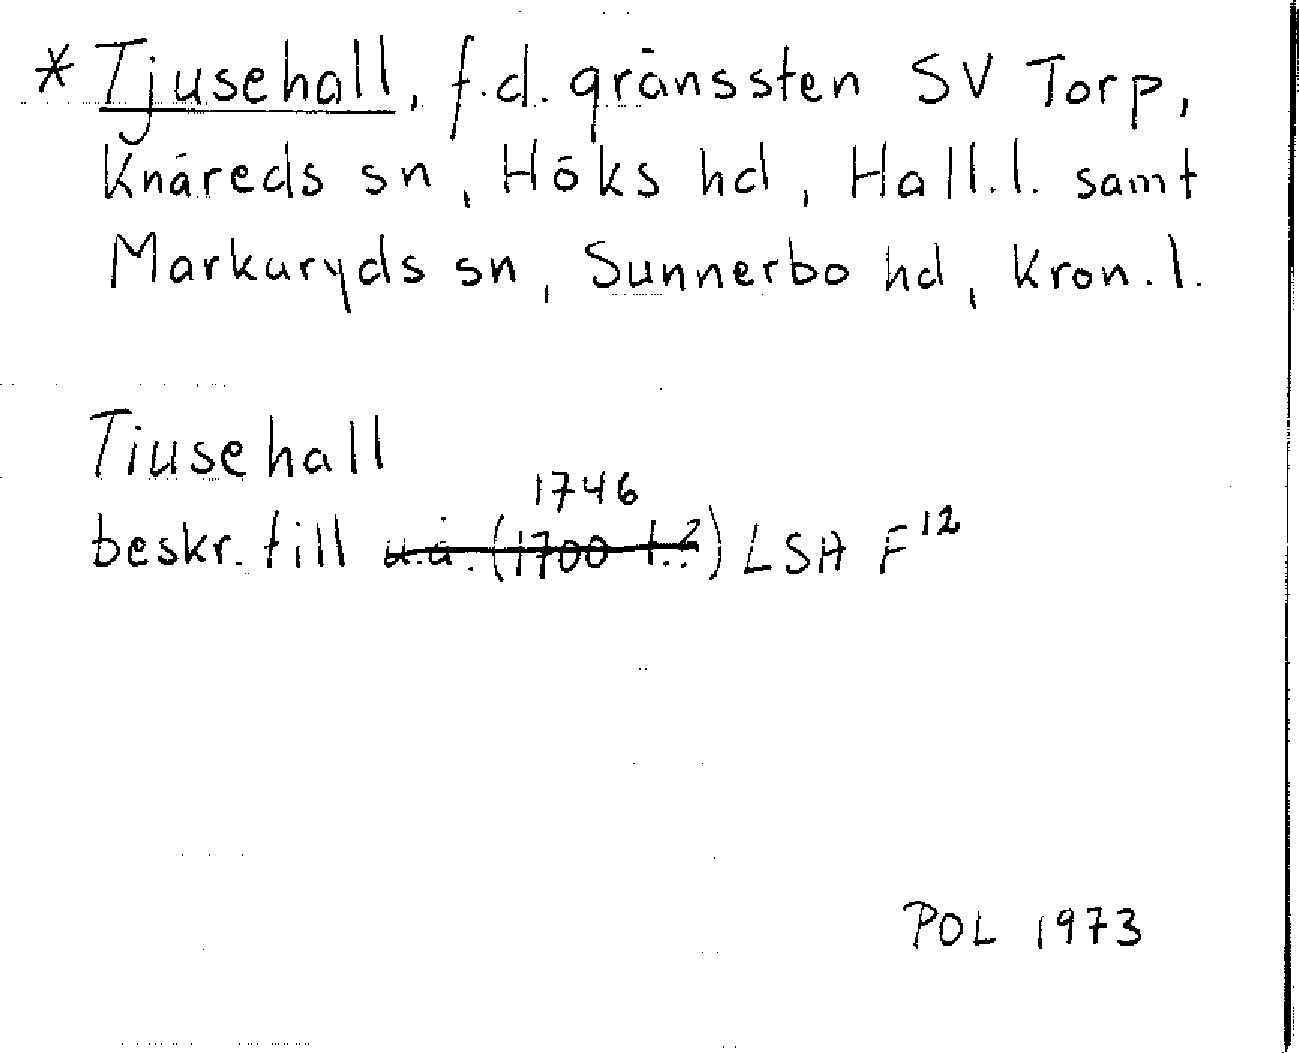 * Tjusehall, f.d. gränssten SV Torp,
Knäreds sn, Höks hd, Hall.l. samt
Markaryds sn, Sunnerbo hd, Kron.l.
Tiusehall
1746
beskr. till u.å. (1700-t.?) LSA F12
POL 1973